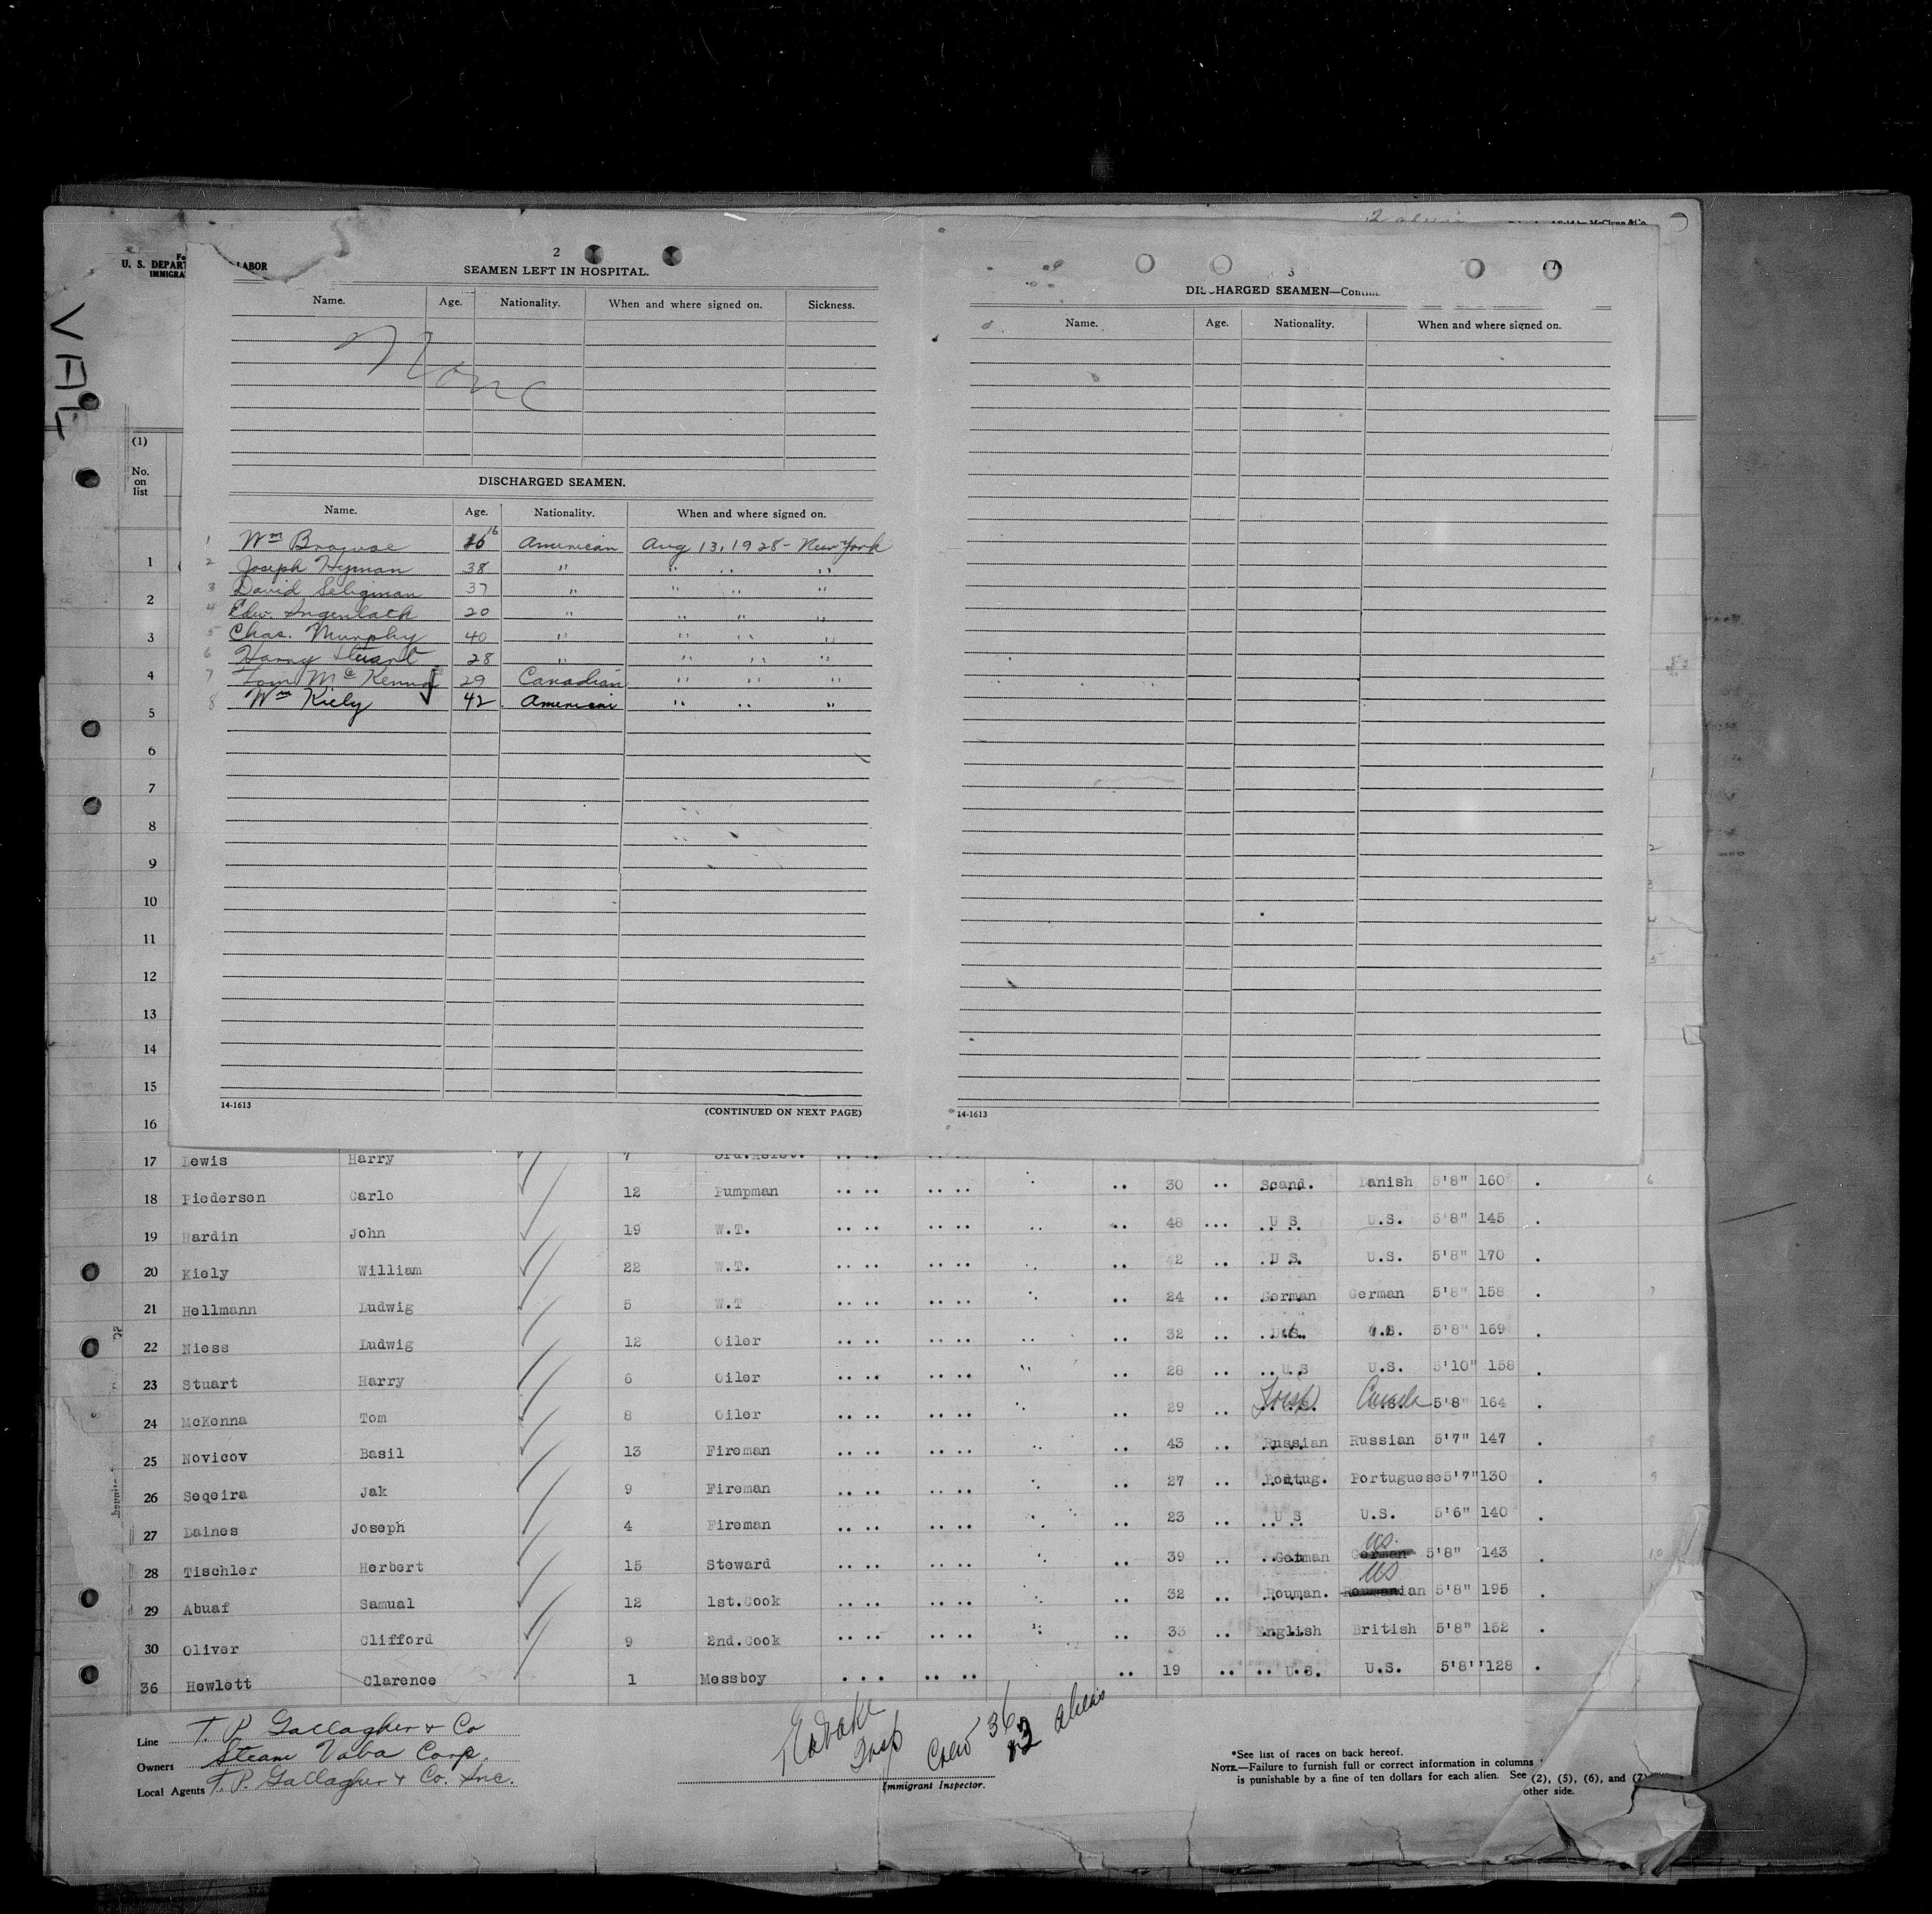 2 aliens
U. S. DEPAR LABOR
IMMIGRA
VABE
(1)
No.
on
list
2
SEAMEN LEFT IN HOSPITAL.
Name. Age. Nationality. When and where signed on. Sickness.
None
DISCHARGED SEAMEN.
Name. Age. Nationality. When and where signed on.
1 Wm 16 American Aug 13, 1928 - New York
2 Joseph Hyman 38 " " " "
3 David Seligman 37 " " " "
4 Edw. Ingenlath 20 " " " "
5 Chas. Murphy 40 " " " "
6 Harry Stuart 28 " " " "
7 Tom McKenna 29 Canadian " " "
8 Wm Kiely 42 American " " "
14-1613 (CONTINUED ON NEXT PAGE)
3
DISCHARGED SEAMEN—Contin
Name. Age. Nationality. When and where signed on.
14-1613
1
2
3
4
5
6
7
8
9
10
11
12
13
14
15
16
17 Lewis Harry 7 3rd.Asist.
18 Piedersen Carlo 12 Pumpman 30 Scand. Danish 5'8" 160
19 Hardin John 19 W.T. 48 U S U.S. 5'8" 145
20 Kiely William 22 W.T. 42 U S. U.S. 5'8" 170
21 Hellmann Ludwig 5 W.T 24 German German 5'8" 158
22 Niess Ludwig 12 Oiler 32 U.S. U.S. 5'8" 169
23 Stuart Harry 6 Oiler 28 U.S U.S. 5'10" 158
24 McKenna Tom 8 Oiler 29 Irish Canada 5'8" 164
25 Novicov Basil 13 Fireman 43 Russian Russian 5'7" 147
26 Seqeira Jak 9 Fireman 27 Portug. Portuguese 5'7" 130
27 Daines Joseph 4 Fireman 23 U S U.S. 5'6" 140
28 Tischler Herbert 15 Steward 39 German German US. 5'8" 143
29 Abuaf Samual 12 1st.Cook 32 Rouman. Roumanian US 5'8" 195
30 Oliver Clifford 9 2nd.Cook 33 English British 5'8" 152
36 Hewlett Clarence 1 Messboy 19 U.S. U.S. 5'8" 128
Line T. P. Gallagher & Co
Owners Steam Vaba Corp.
Local Agents T. P. Gallagher & Co. Inc.
Insp Crew 36
12 aliens
Immigrant Inspector.
*See list of races on back hereof.
NOTE.—Failure to furnish full or correct information in columns (2), (5), (6), and (7)
is punishable by a fine of ten dollars for each alien. See other side.